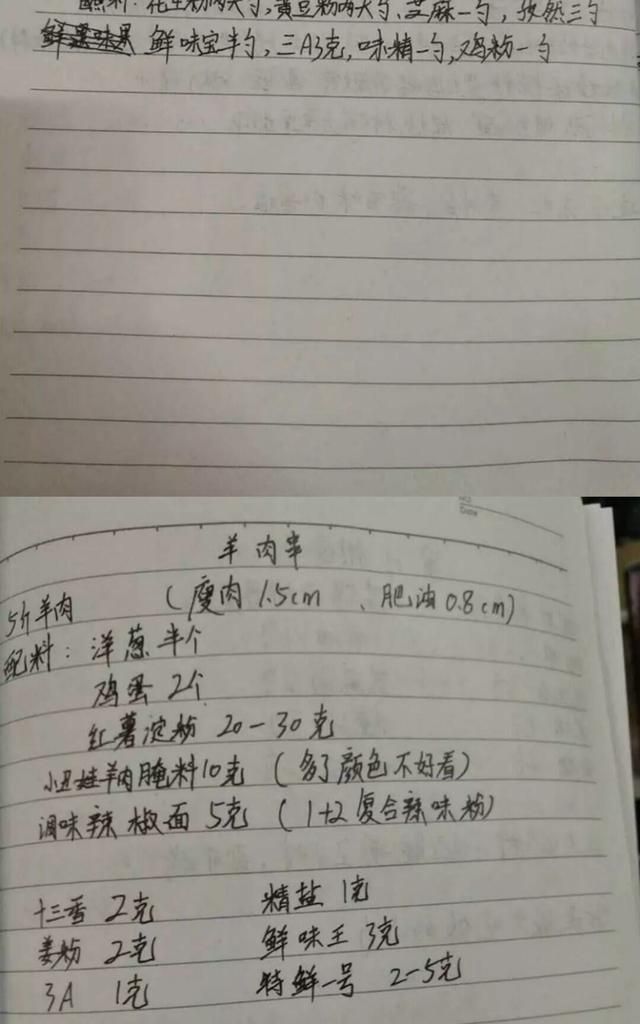 蘸料：花生粉两大勺，黄豆粉两大勺，芝麻一勺，孜然三勺
鲜味宝半勺，三A3克，味精一勺，鸡粉一勺
羊肉串
5斤羊肉 （瘦肉1.5cm、肥油0.8cm）
配料：洋葱半个
鸡蛋2个
红薯淀粉 20-30克
小丑娃羊肉腌料10克（多了颜色不好看）
调味辣椒面 5克（1+2复合辣味粉）
十三香 2克 精盐 1克
姜粉 2克 鲜味王 3克
3A 1克 特鲜一号 2-5克